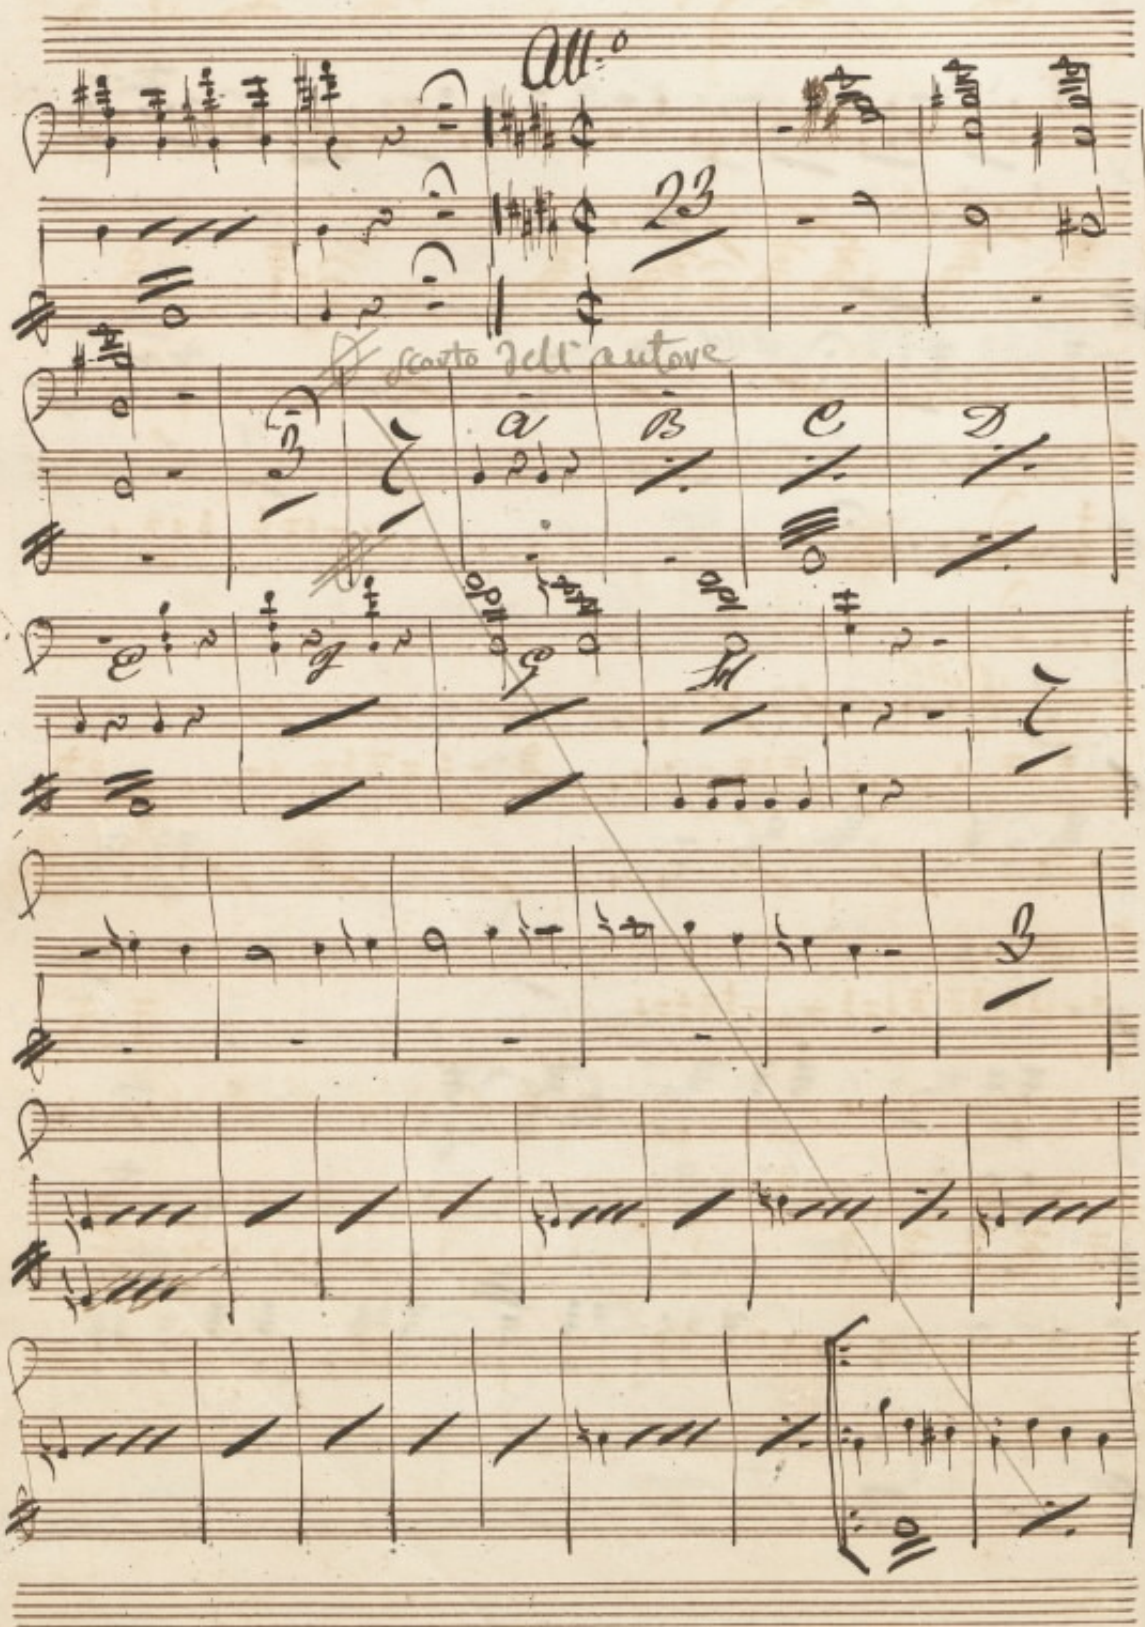 All.o
23
scarto dell'autore
3 7 A B C D
E F G H
7
3